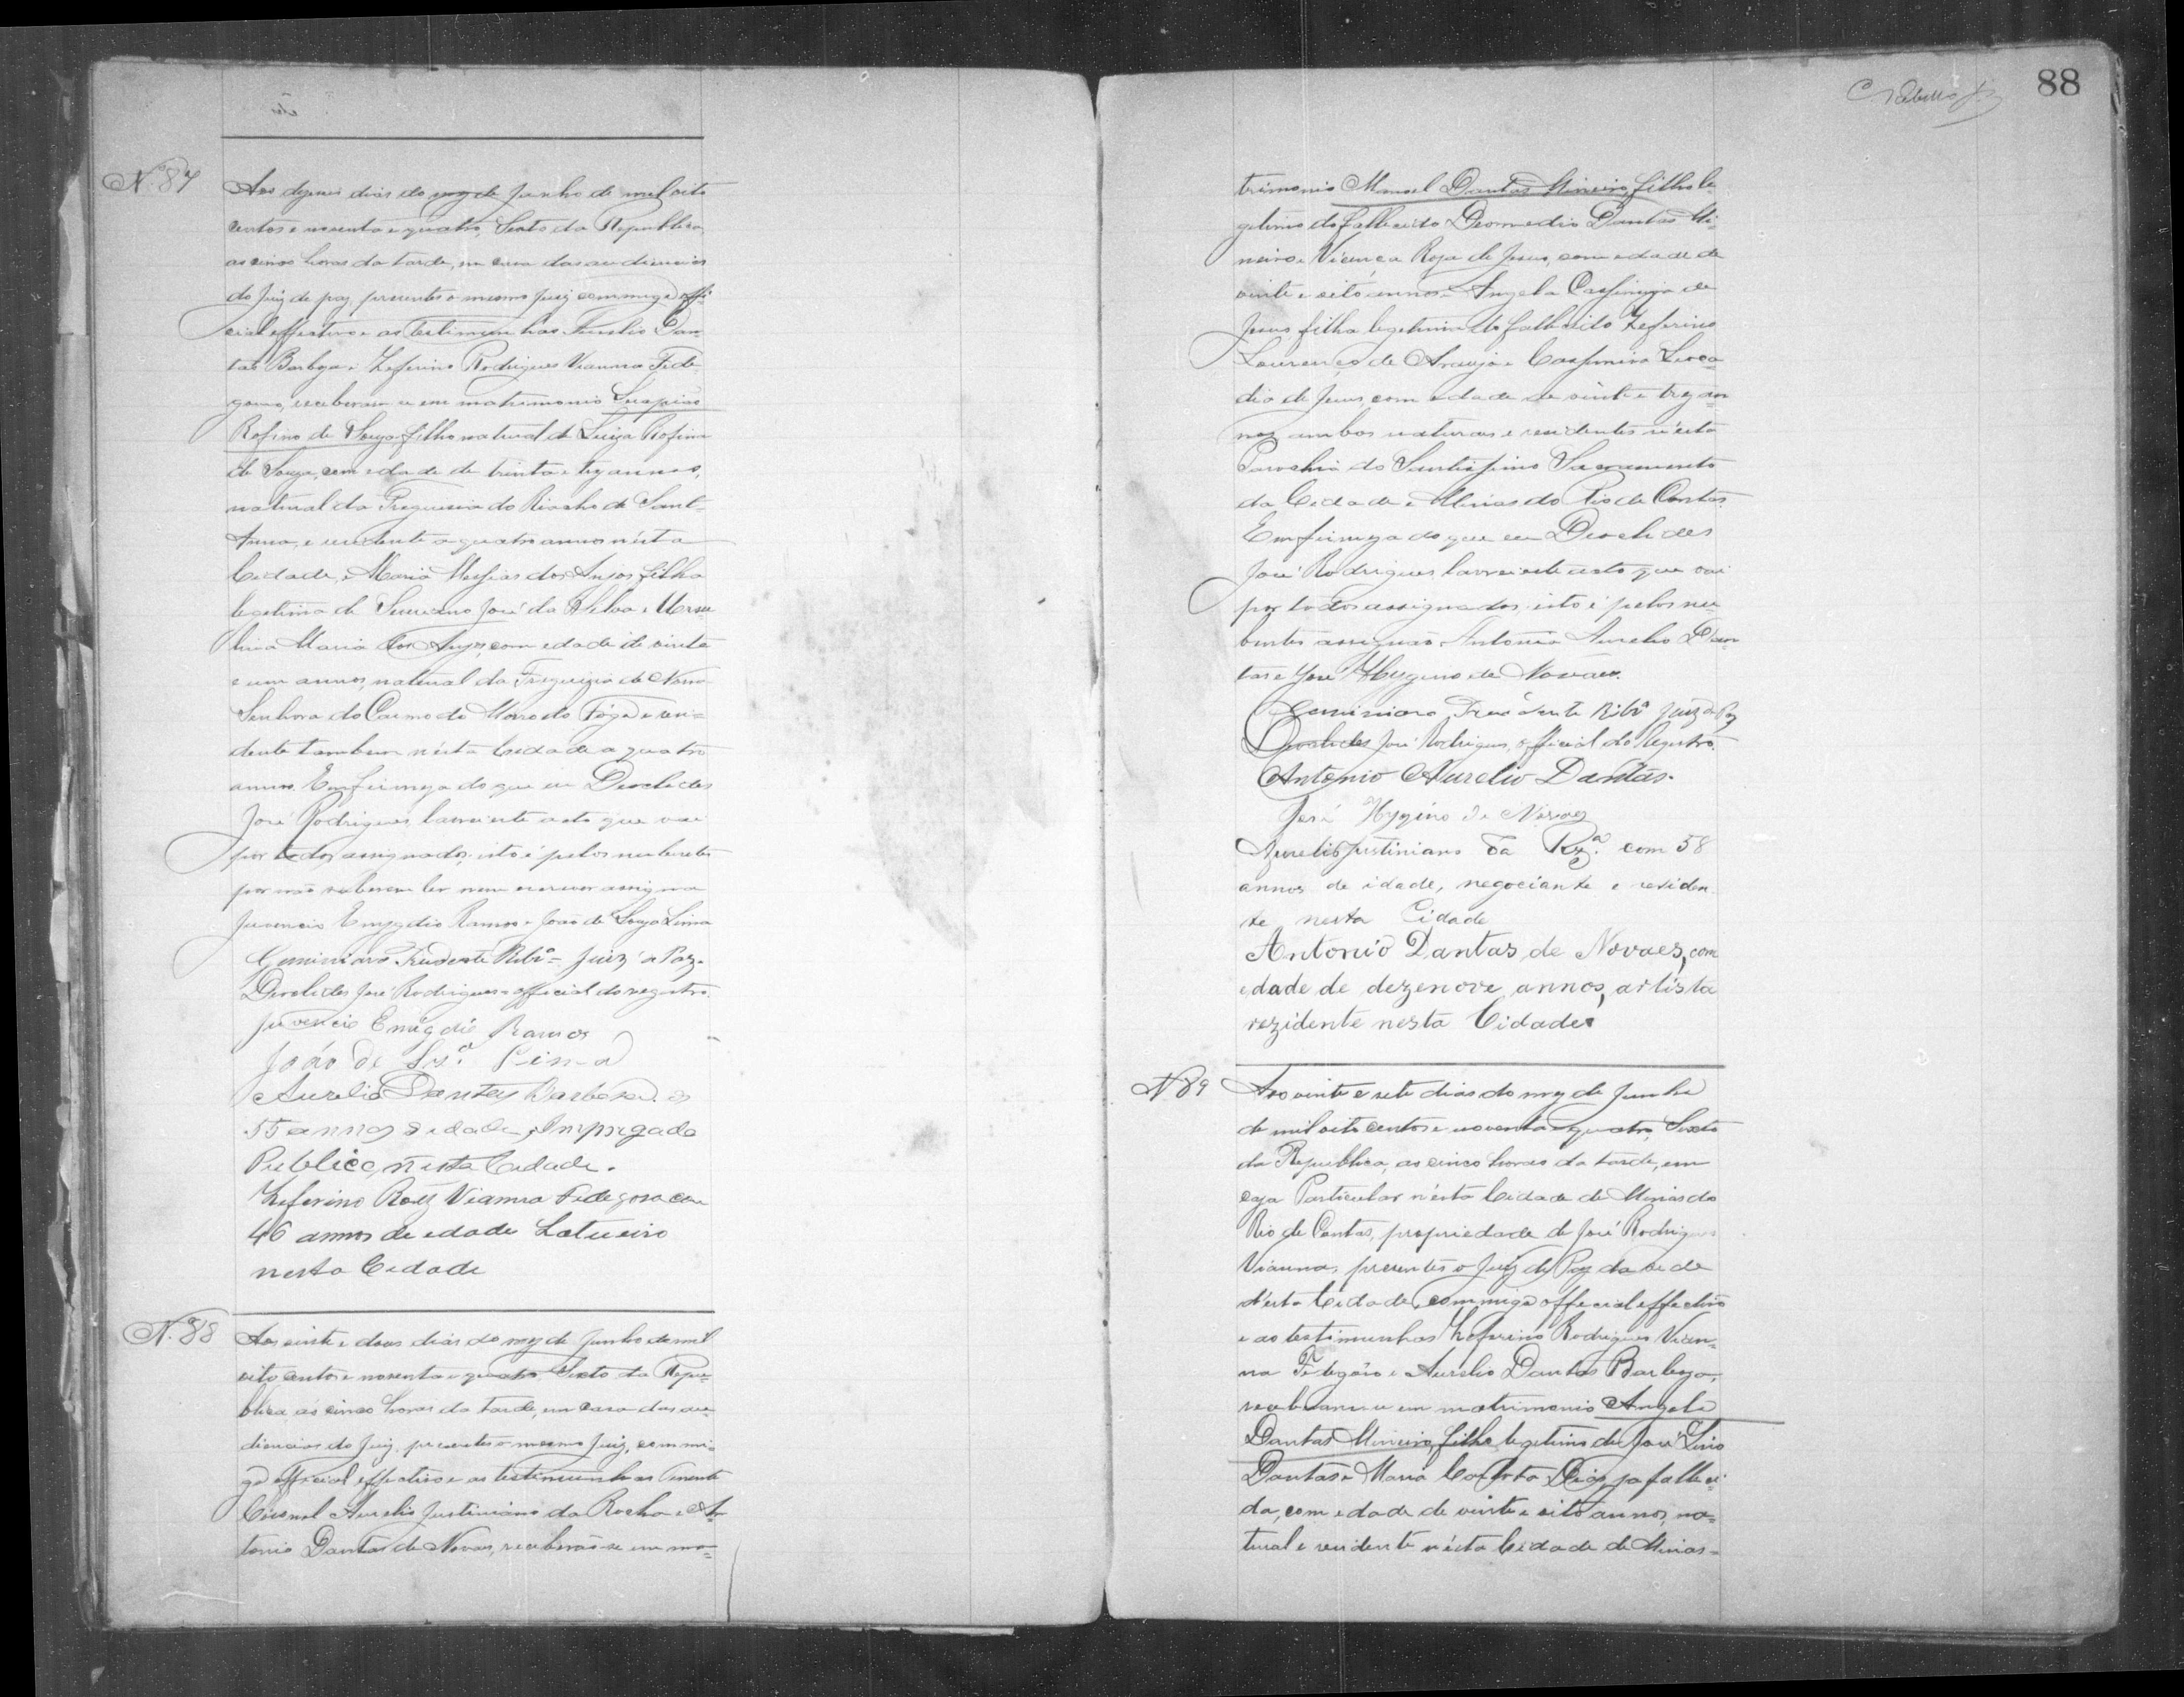 N. 87
Aos dezeseis dias do mez de Junho de mil oito
centos e noventa e quatro, Sexto da Republica,
as cinco horas da tarde, em casa das audiencias
do Juiz de paz, presentes o mesmo Juiz commigo offi
cial effectivo e as testimunhas Aurelio Dan-
tas Barboza e Zeferino Rodrigues Vianna Fede
gozo, receberam se em matrimonio Serapião
Rofino de Souza filho natural de Luiza Rofina
de Souza, com edade de trinta e trez annos,
natural da Freguezia do Riacho de Sant-
Anna, e residente a quatro annos n'esta
Cidade, e Maria Messias dos Anjos filha
legitima de José da Silva e
Maria dos Anjos, com edade de vinte
e um annos, natural da Freguizia de Nossa
Senhora do Carmo do Morro do Fogo e resi-
dente tambem n'esta Cidade a quatro
annos. Em firmeza do que eu Dioclides
José Rodrigues, lavrei este acto que vai
por todos assignados, isto é pelos nubentes
por não saberem ler nem escrever assigna
Juvencio Emygdio Ramos e João de Souza Lima
Geminiano Trudente Ribrº Juiz de Paz.
Dioclides José Rodrigues official do registro.
Juvencio Emigdio Ramos
João de Lima
Aurelio Dantas Barboza
55 annos d edade, Impregado
Publico, n'esta Cidade.
Zeferino Roiz Vianna Fedegoso com
46 annos de edade Latueiro
nesta Cidade
N. 88
Aos vinte e dous dias do mez de Junho de mil
oito centos e noventa e quatro Sexto da Repu-
blica, as cinco horas da tarde, em casa das au-
diencias do Juiz, presentes o mesmo Juiz, commi-
go official effectivo e as testimunhas Tenente
Coronel Aurelio Justiniano da Rocha e An
tonio Dantas de Novaes, receberão-se em ma-
88
trimonio Manoel Dantas Mineiro, filho le-
gitimo do fallecido Deomedio Dantas Mi-
neiro e Vicença Roza de Jesus, com edade de
vinte e oito annos e Angela Cassimira de
Jesus filha legitima do fallecido Zeferino
Lourenço de Araujo e Cassimira Leoca
dia de Jesus, com edade de vinte e trez an
nos, ambos naturaes e residentes n'esta
Parochia do Santissimo Sacramento
da Cidade e Minas do Rio de Contas.
Em firmeza do que eu Dioclides
José Rodrigues lavrei este acto que vai
por todos assignados, isto é pelos nu
bentes assignão Antonio Aurelio Dan
tas e José Hygino de Novaes.
Geminiano Trudente Ribrº Juiz de Paz
Dioclides José Rodrigues, official do Registro.
Antonio Aurelio Dantas.
José Hygino de Novaes
Aurelio Justiniano da Rxª com 58
annos de idade, negociante e residen
te nesta Cidade
Antonio Dantas de Novaes, com
edade de dezenove annos, artista
rezidente nesta Cidade
N 89
Aos vinte e sete dias do mez de Junho
de mil oito centos e noventa e quatro, Sexto
da Republica, as cinco horas da tarde, em
caza Particular n'esta Cidade de Minas do
Rio de Contas, propriedade de José Rodrigues
Vianna, presentes o Juiz de Paz da séde
d'esta Cidade, commigo official effectivo
e as testimunhas Zeferino Rodrigues Vian-
na Fedegozo e Aurelio Dantas Barboza,
receberam se em matrimonio Angelo
Dantas Mineiro, filho legitimo de José Lino
Dantas e Maria Dias, ja falleci-
da, com edade de vinte e oito annos, na-
tural e residente n'esta Cidade de Minas-